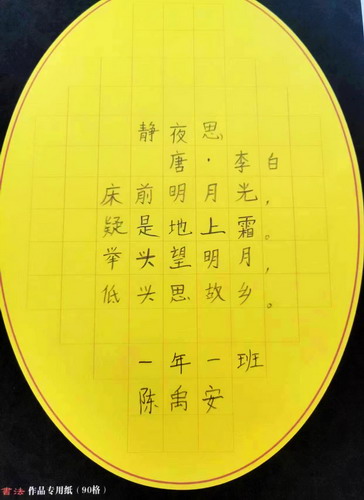 静夜思
唐·李白
床前明月光，
疑是地上霜。
举头望明月，
低头思故乡。
一年一班
陈禹安
书法作品专用纸（90格）